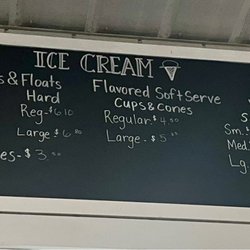 ICE CREAM
s & Floats
Hard
Reg-$6.10
Large-$6.80
es-$3.50
Flavored Soft Serve
Cups & Cones
Regular-$4.50
Large-$5.50
S
Sm.
Med.
Lg